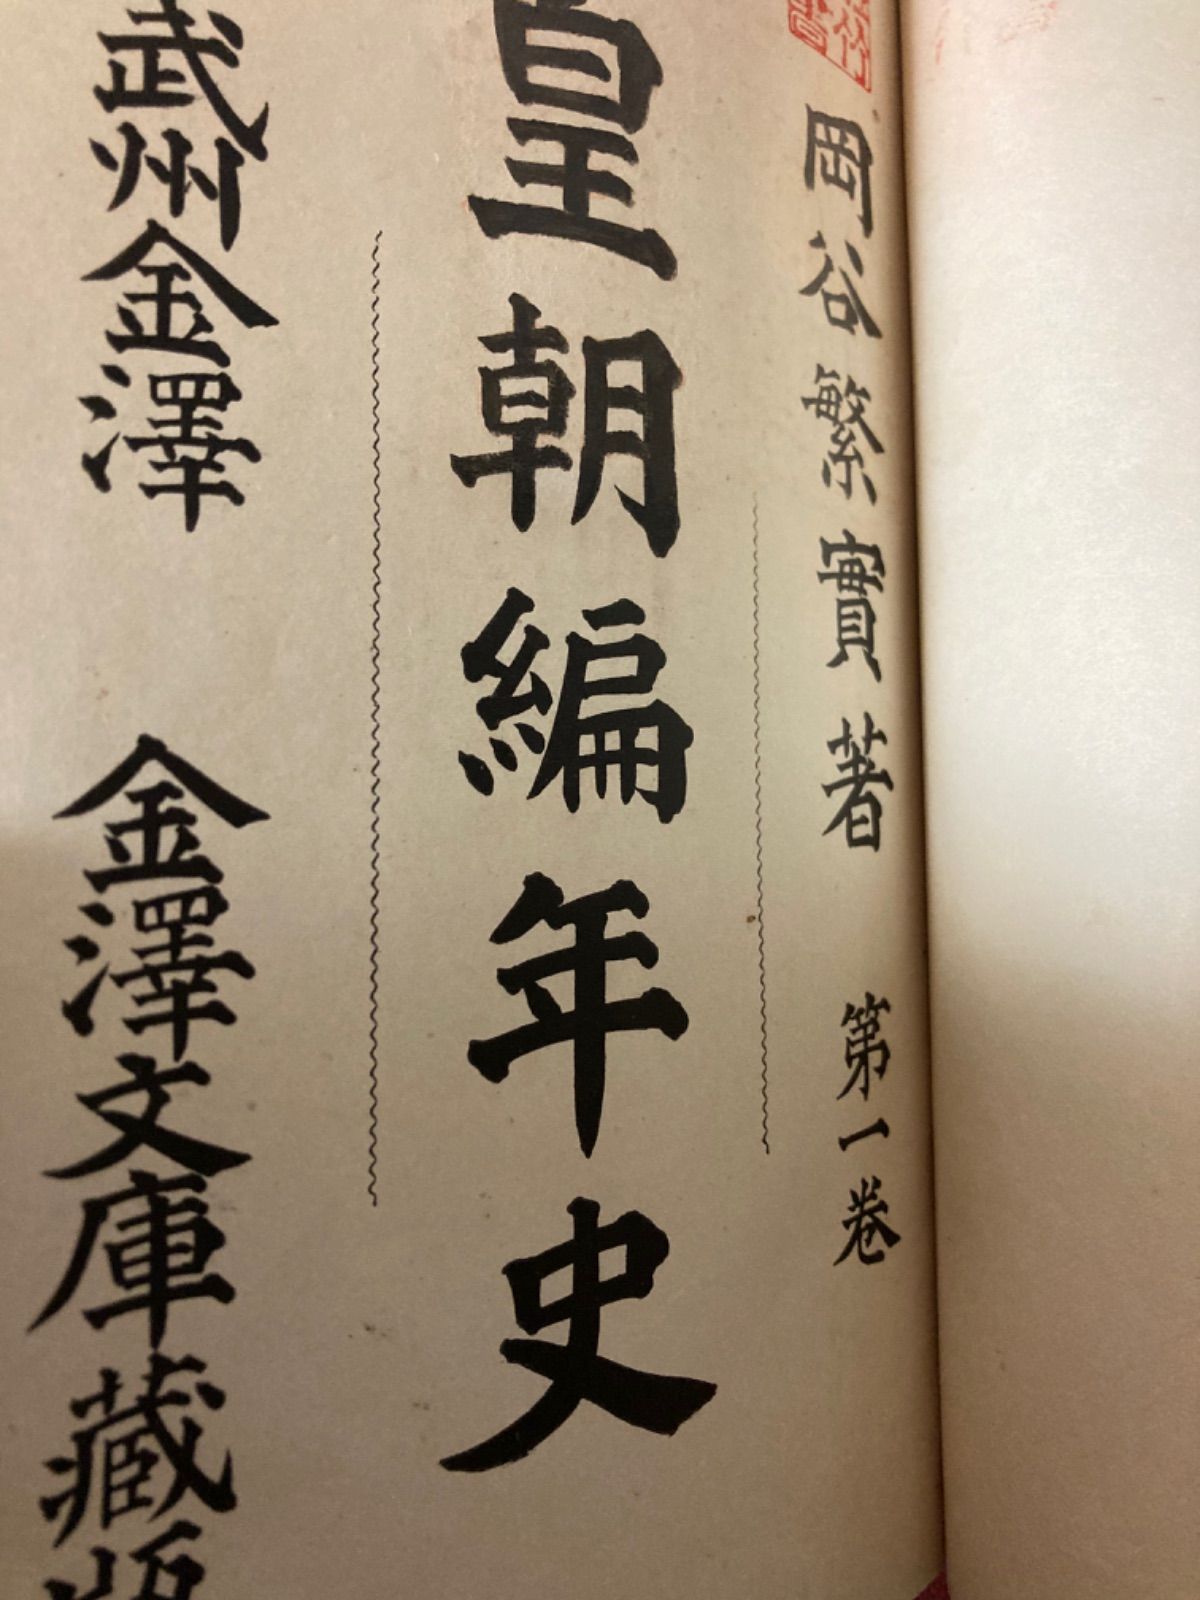 岡谷繁實著 第一卷
皇朝編年史
武州金澤 金澤文庫藏版